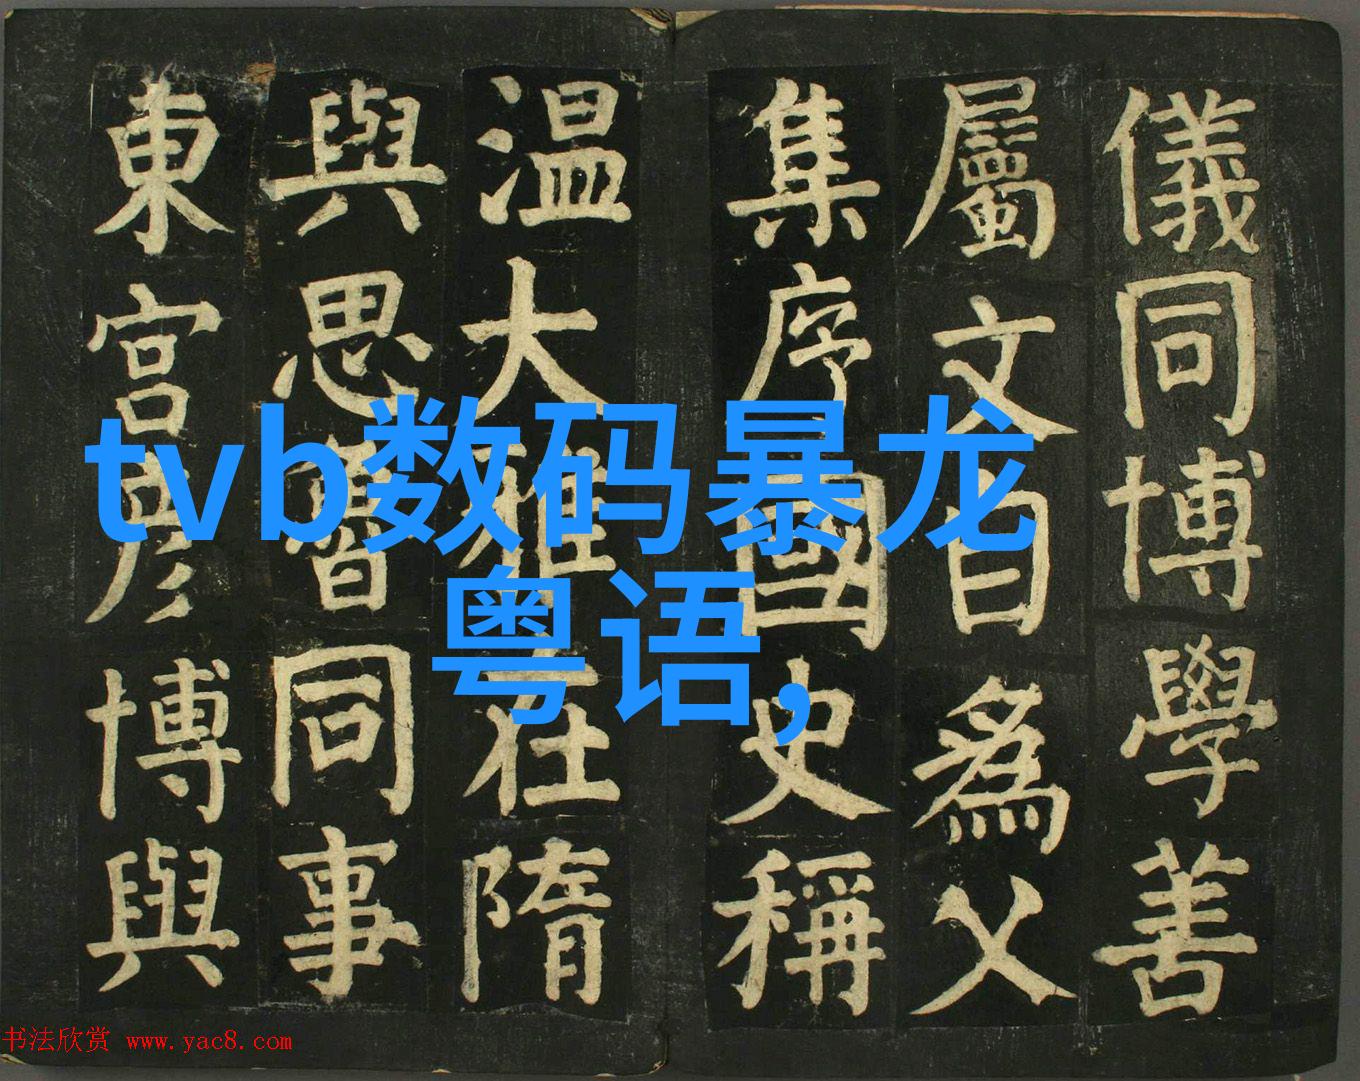 儀同博學善
屬文自為父
集序國史稱
温大雅在隋
與思魯同事
東宮彥博與
tvb数码暴龙
粤语,
书法欣赏 www.yac8.com